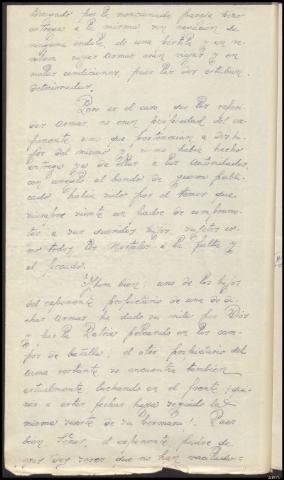 tenida por la mencionada pareja hizo
entrega a la misma sin
ninguna índole, de una
cuyas armas eran viejas y en
malas condiciones, pues las dos estaban
deterioradas.
Pero es el caso que las referi-
das armas no eran propiedad del ex-
ponente sino que pertenecían a dos hi-
jos del mismo y, si no había hecho
entrega ya de ellas a las autoridades,
con arreglo al bando de guerra publi-
cado, había sido por el temor que
siempre siente un padre de
a sus queridos hijos, sujetos co-
mo todos los mortales a la falta y
al pecado.
Ahora bien: uno de los hijos
del exponente propietario de una de di-
chas armas ha dado su vida por Dios
y por la Patria peleando en los cam-
pos de batalla; el otro propietario del
arma restante se encuentra también
actualmente luchando en el frente ¡qui-
zás a estas fechas haya seguido la
misma suerte de su hermano!. Pues
bien, Señor, el exponente, padre de
esos dos seres que no han vacilado =